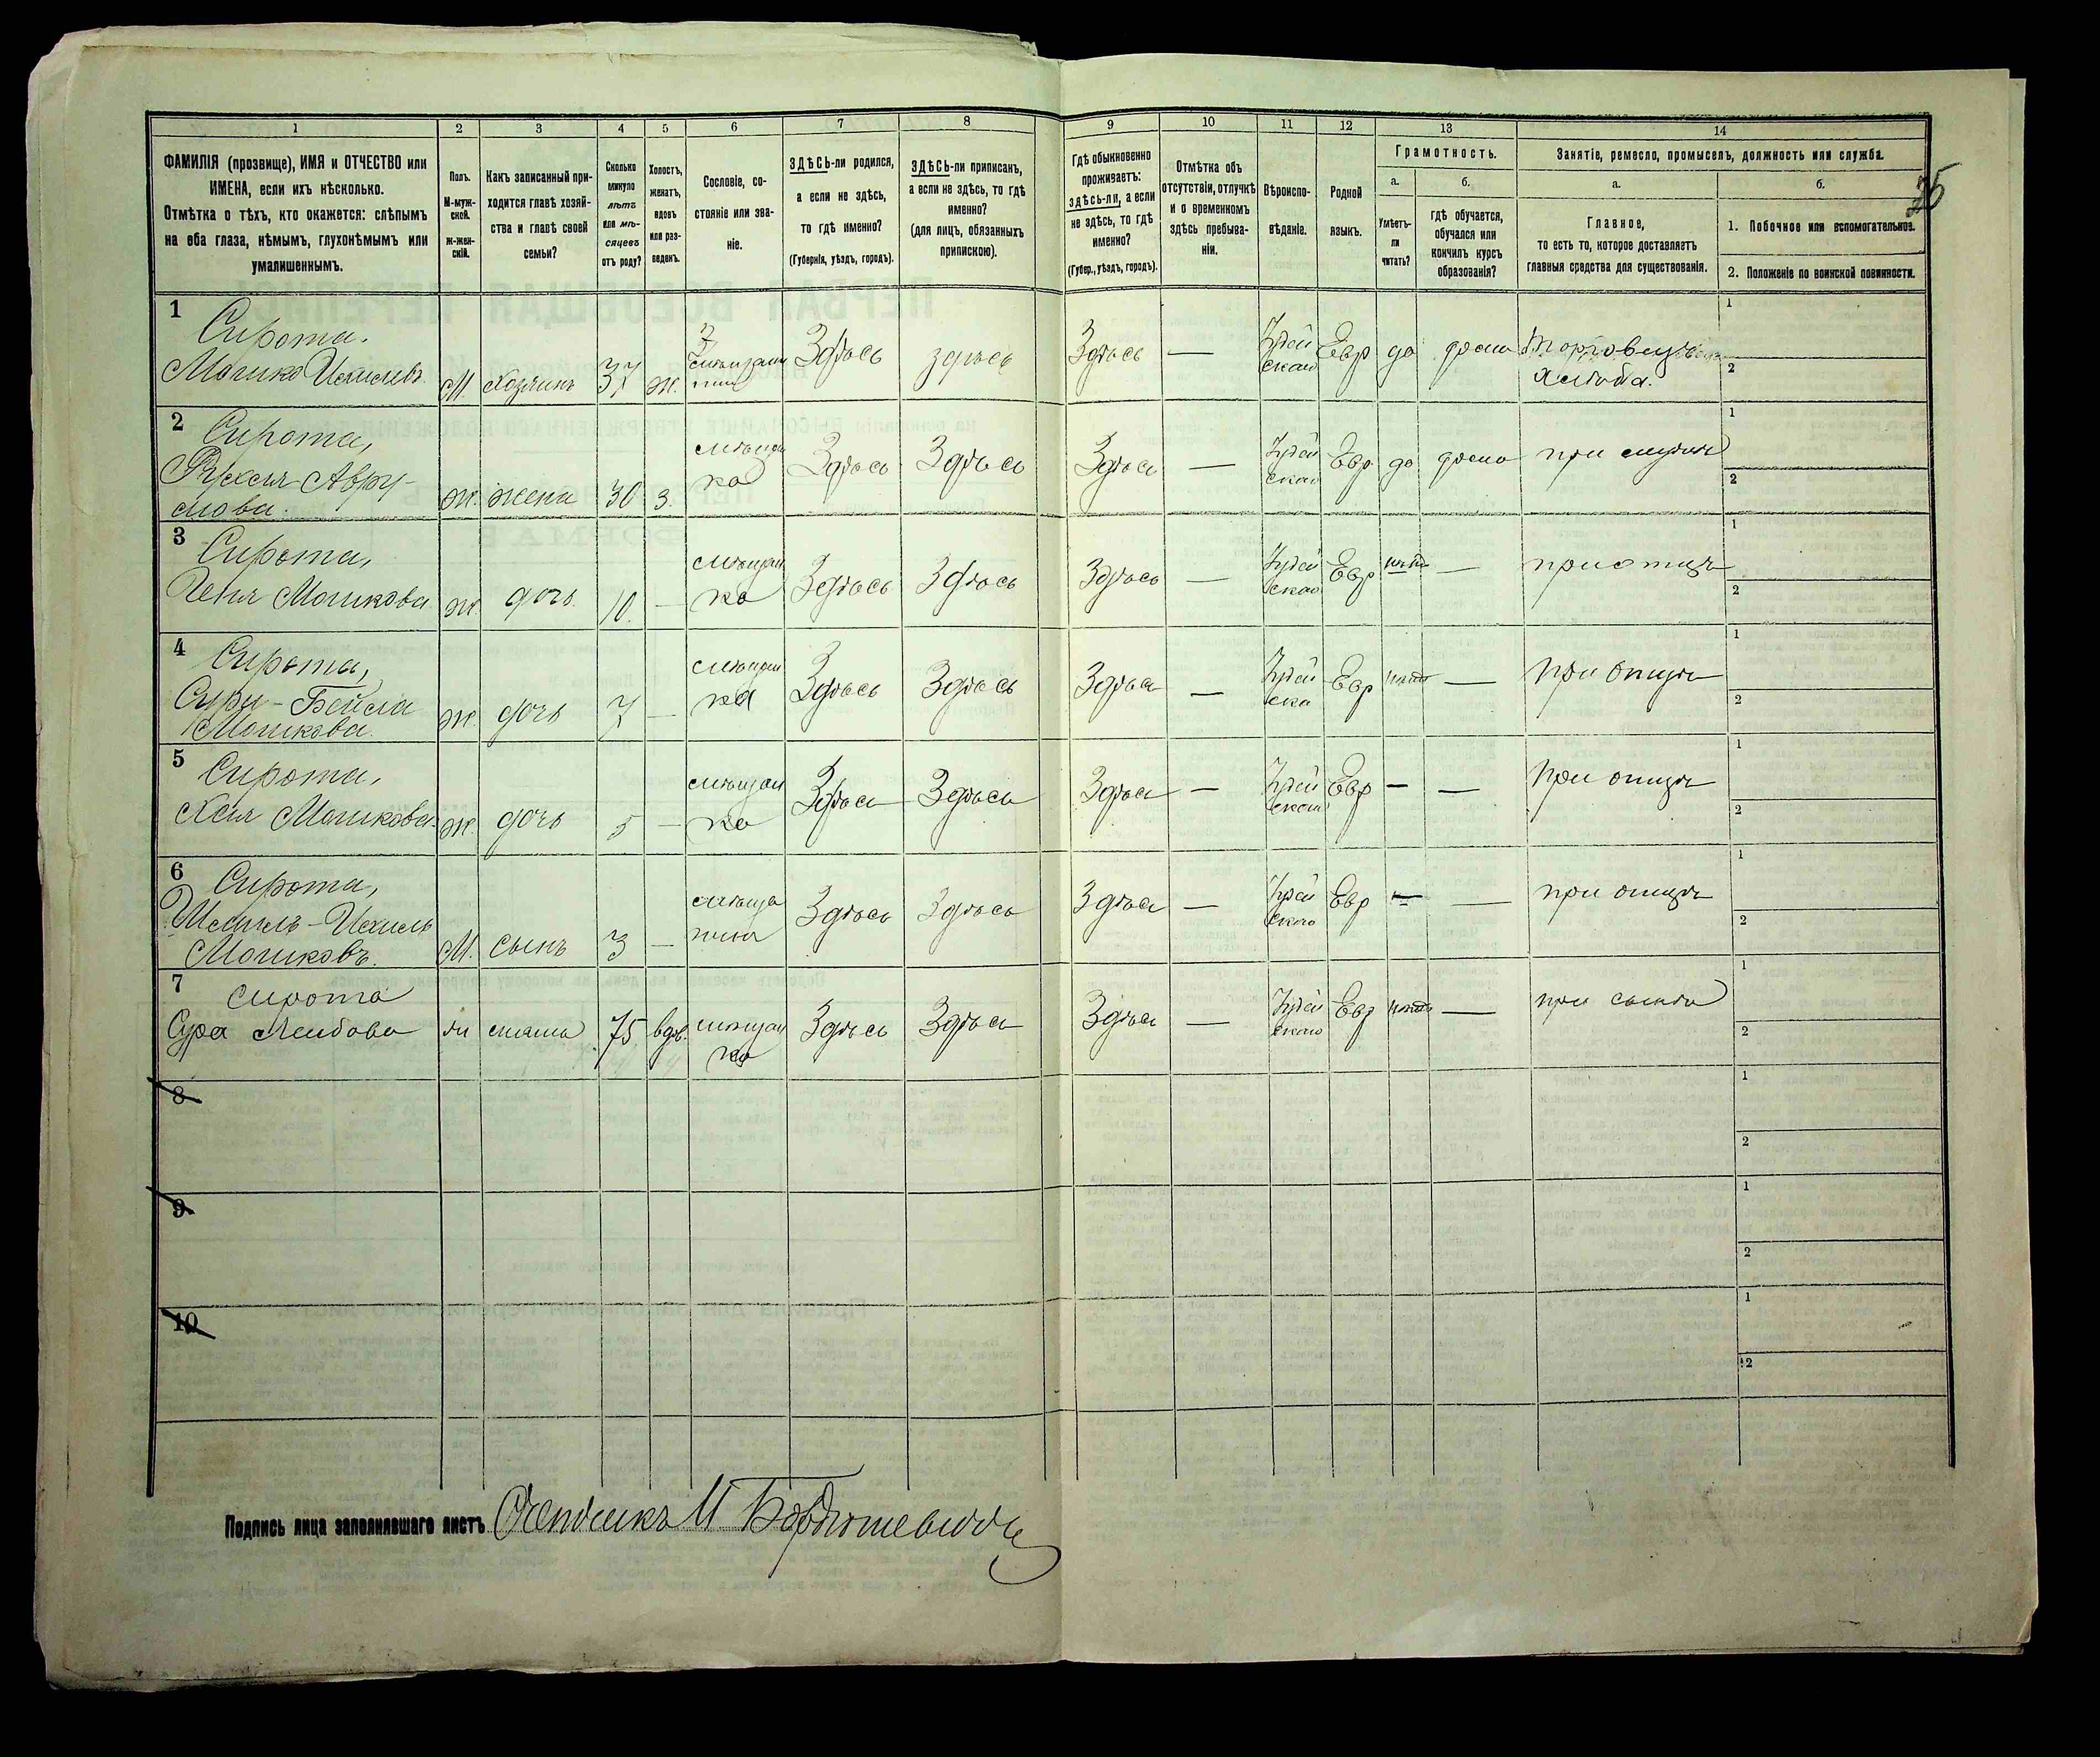 1 2 3 4 5 6 7 8 9 10 11 12 13 14
ФАМИЛІЯ (прозвище), ИМЯ и ОТЧЕСТВО или
ИМЕНА, если ихъ нѣсколько.
Отмѣтка о тѣхъ, кто окажется: слѣпымъ
на оба глаза, нѣмымъ, глухонѣмымъ или
умалишеннымъ.
Полъ.
М-муж-
ской.
ж-жен-
скій.
Какъ записанный при-
ходится главѣ хозяй-
ства и главѣ своей
семьи?
Сколько
минуло
лѣтъ
или мѣ-
сяцевъ
отъ роду?
Холостъ,
женатъ,
вдовъ
или раз-
веденъ.
Сословіе, со-
стояніе или зва-
ніе.
ЗДѢСЬ-ли родился,
а если не здѣсь,
то гдѣ именно?
(Губернія, уѣздъ, городъ).
ЗДѢСЬ-ли приписанъ,
а если не здѣсь, то гдѣ
именно?
(для лицъ, обязанныхъ
припискою).
Гдѣ обыкновенно
проживаетъ:
здѣсь-ли, а если
не здѣсь, то гдѣ
именно?
(Губер., уѣздъ, городъ).
Отмѣтка объ
отсутствіи, отлучкѣ
и о временномъ
здѣсь пребыва-
ніи.
Вѣроиспо-
вѣданіе.
Родной
языкъ.
Грамотность.
а.
Умѣетъ-
ли
читать?
б.
гдѣ обучается,
обучался или
кончилъ курсъ
образованія?
Занятіе, ремесло, промыселъ, должность или служба.
а.
Главное,
то есть то, которое доставляетъ
главныя средства для существованія.
б.
1. Побочное или вспомогательное.
2. Положеніе по воинской повинности.
1 Сирота.
Мошко Ихилевъ. М. хозяинъ 37 ж. Здѣсь здѣсь Здѣсь — Іудей
ское Евр да дома Торговецъ
хлѣба.
1
2
2 Сирота,
Рухля Авру-
мова. ж. жена 30 з. мѣщан
ка Здѣсь Здѣсь Здѣсь — Іудей
ское Евр да дома при мужѣ
1
2
3 Сирота,
Геня Мошкова ж. дочь 10. — мѣщан
ка Здѣсь Здѣсь Здѣсь — Іудей
ское Евр нѣтъ — при отцѣ
1
2
4 Сирота,
Сура-Бейла
Мошкова. ж. дочь 7 — мѣщан
ка Здѣсь Здѣсь Здѣсь — Іудей
ска Евр нѣтъ — при отцѣ
1
2
5 Сирота,
Хая Мошкова ж. дочь 5 — мѣщан
ка Здѣсь Здѣсь Здѣсь — Іудей
ское Евр — — при отцѣ
1
2
6 Сирота,
Ихиль
Мошковъ. М. сынъ 3 — мѣща
нинъ Здѣсь Здѣсь Здѣсь — Іудей
ское Евр — — при отцѣ
1
2
7 Сирота
Сура Лейбова мама 75 вдов. мѣщан
ка Здѣсь Здѣсь Здѣсь — Іудей
ское Евр нѣтъ — при сынѣ
1
2
8
1
2
9
1
2
10
1
2
Подпись лица заполнявшаго листъ